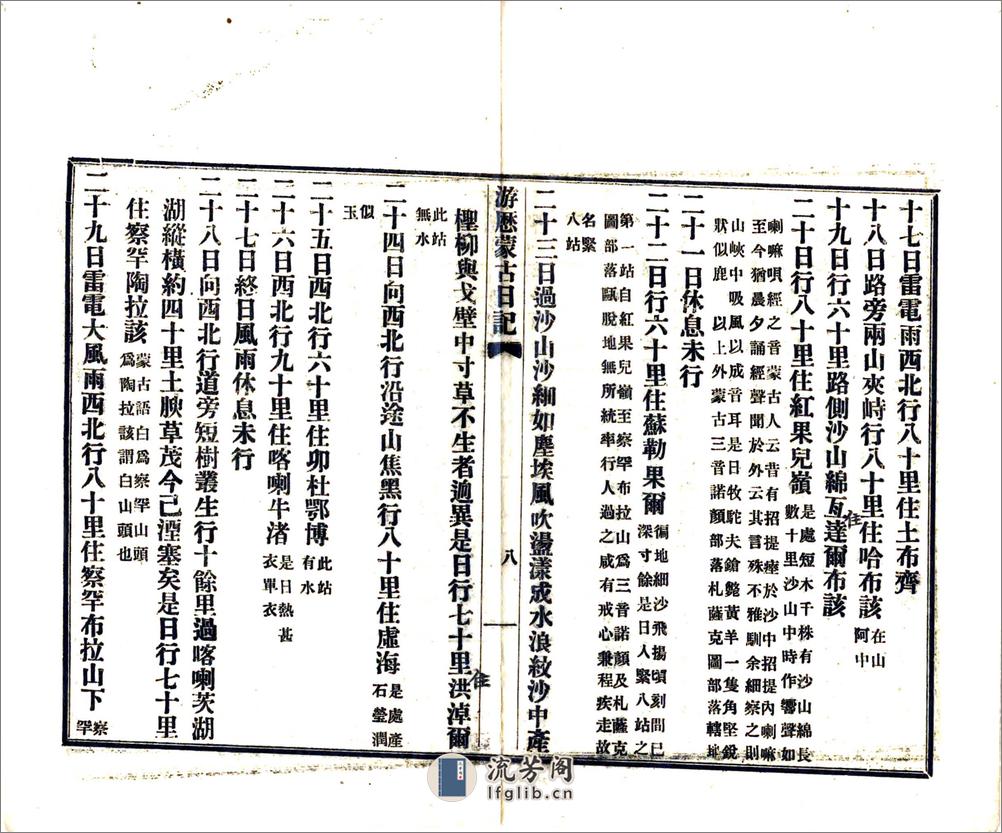 十七日雷電雨西北行八十里住土布齊
十八日路旁兩山夾峙行八十里住哈布該在山阿中
十九日行六十里路側沙山綿亙達爾布該
住
二十日行八十里住紅果兒嶺是處短木千株有沙山綿長數十里沙山中時作響聲如
喇嘛唄經之音蒙古人云昔有招提瘞於沙中招提內喇嘛
至今猶晨夕誦經聲聞於外云其言殊不雅馴余細察之則
山峽中吸風以成音耳是日牧駝夫鎗斃黃羊一隻角堅銳
狀似鹿 以上外蒙古三音諾顏部落札薩克圖部落轄地
二十一日休息未行
二十二日行六十里住蘇勒果爾徧地細沙飛揚頃刻間已深寸餘是日入緊八站之
第一站自紅果兒嶺至察罕布拉山為三音諾顏及札薩克
圖部落甌脫地無所統率行人過之咸有戒心兼程疾走故
名緊
八站
二十三日過沙山沙細如塵埃風吹盪漾成水浪紋沙中產
游歷蒙古日記
八
檉柳與戈壁中寸草不生者逈異是日行七十里洪淖爾
住
此站
無水
二十四日向西北行沿途山焦黑行八十里住虛海是處產石瑩潤
似
玉
二十五日西北行六十里住卯杜鄂博此站有水
二十六日西北行九十里住喀喇牛渚是日熱甚衣單衣
二十七日終日風雨休息未行
二十八日向西北行道旁短樹叢生行十餘里過喀喇茨湖
湖縱橫約四十里土腴草茂今已湮塞矣是日行七十里
住察罕陶拉該蒙古語白為察罕山頭為陶拉該謂白山頭也
二十九日雷電大風雨西北行八十里住察罕布拉山下察罕
流芳阁
lfglib.cn